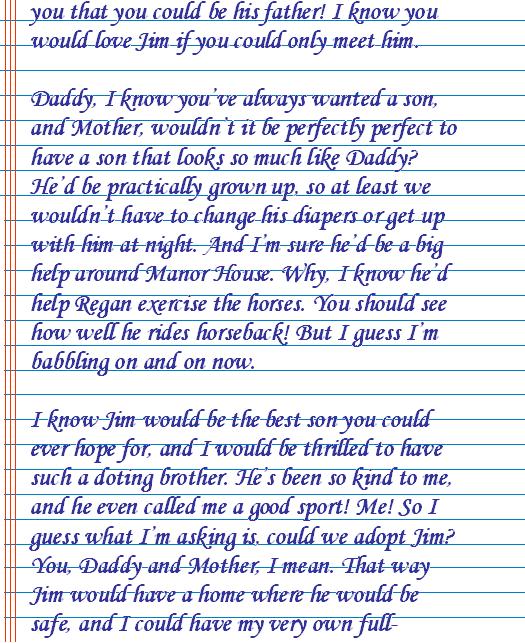 you that you could be his father! I know you
would love Jim if you could only meet him.
Daddy, I know you've always wanted a son,
and Mother, wouldn't it be perfectly perfect to
have a son that looks so much like Daddy?
He'd be practically grown up, so at least we
wouldn't have to change his diapers or get up
with him at night. And I'm sure he'd be a big
help around Manor House. Why, I know he'd
help Regan exercise the horses. You should see
how well he rides horseback! But I guess I'm
babbling on and on now.
I know Jim would be the best son you could
ever hope for, and I would be thrilled to have
such a doting brother. He's been so kind to me,
and he even called me a good sport! Me! So I
guess what I'm asking is, could we adopt Jim?
You, Daddy and Mother, I mean. That way
Jim would have a home where he would be
safe, and I could have my very own full-